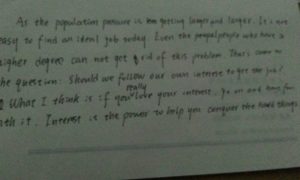 As the population pressure is getting larger and larger. It is not
easy to find an ideal job today. Even the people who have a
higher degree can not get rid of this problem. That's come to
the question: Should we follow our own interest to get the job?
What I think is: if you really love your interest, go on and have fun
with it. Interest is the power to help you conquer the hard things